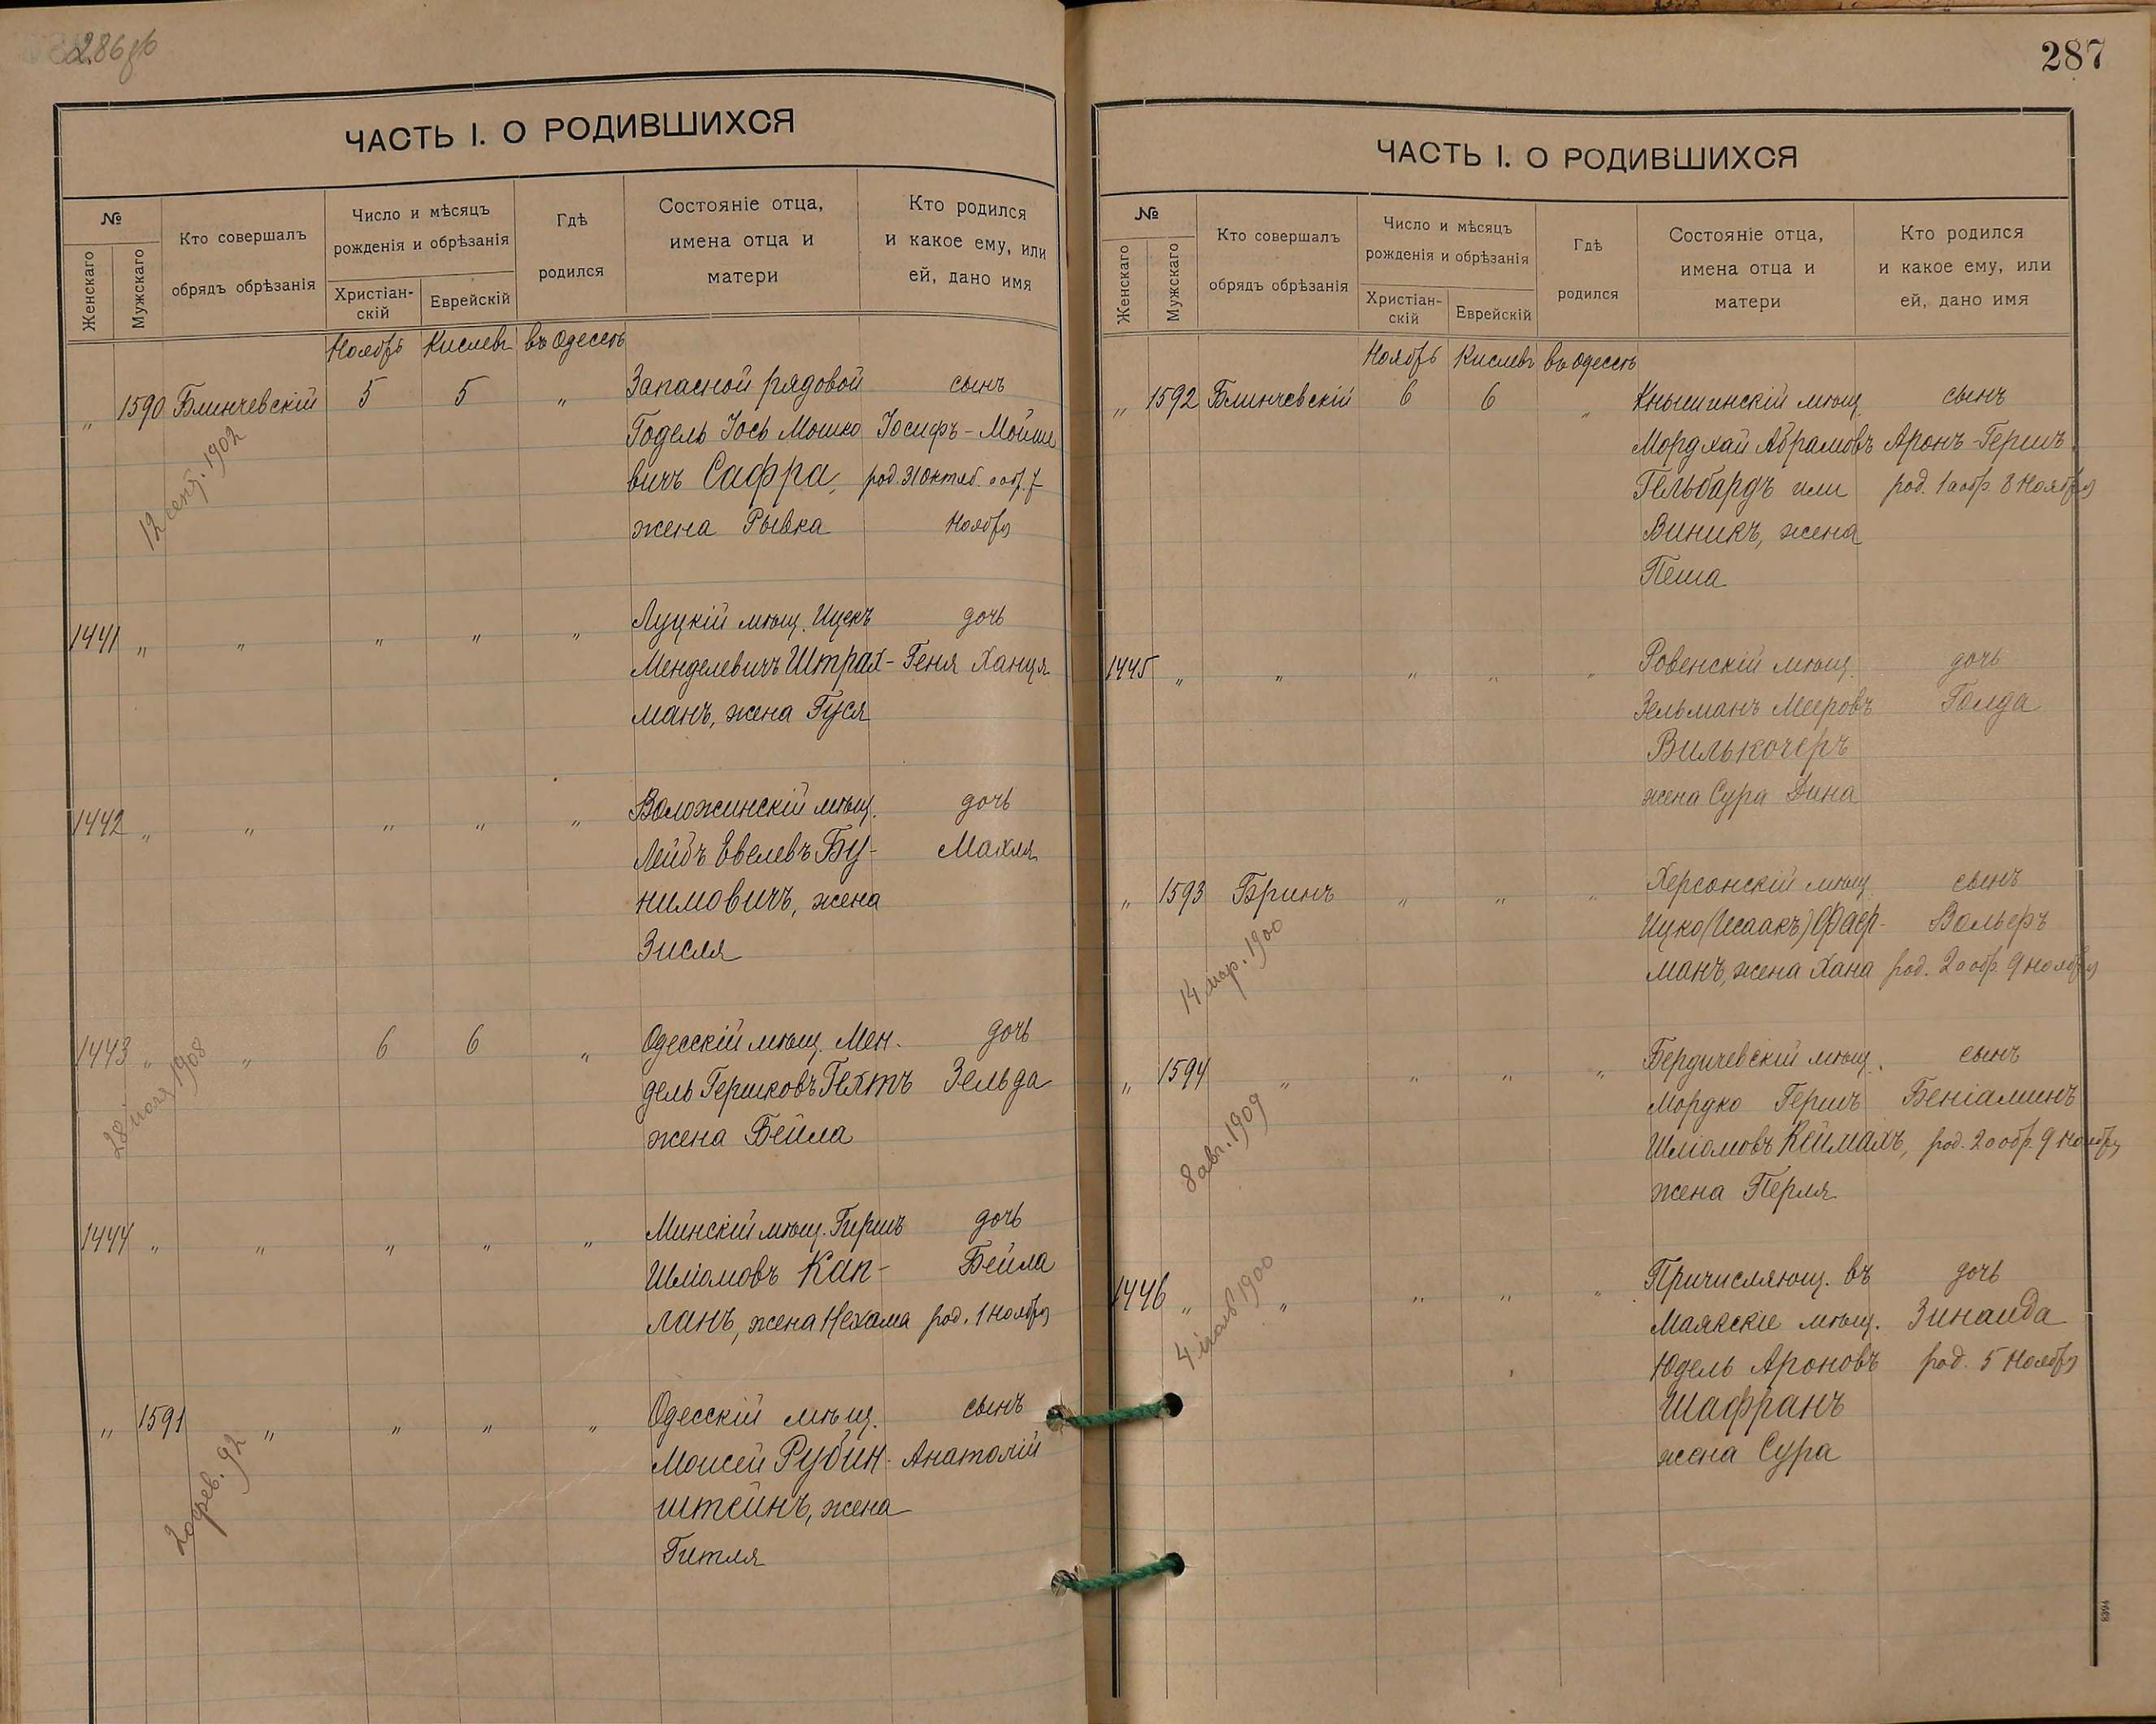 286об
ЧАСТЬ I. О РОДИВШИХСЯ
№
Женскаго
Мужскаго
Кто совершалъ
обрядъ обрѣзанія
Число и мѣсяцъ
рожденія и обрѣзанія
Христіан-
скій
Еврейскій
Гдѣ
родился
Состояніе отца,
имена отца и
матери
Кто родился
и какое ему, или
ей, дано имя
Ноябрь Кислевъ въ Одессѣ
" 1590 Блинчевскій 5 5 " Запасной рядовой сынъ
Годель Іось Мошко Іосифъ-Мойше
вичъ Сафра, род. 31 Октяб. а обр. 7
жена Рывка Ноября
12 сент. 1902
1441 " " " " " Луцкій мѣщ. Ицекъ дочь
Менделевичъ Штрах- Геня Ханця
манъ, жена Гуся
1442 " " " " " Воложинскій мѣщ. дочь
Лейбъ Евелевъ Бу- Махля
нимовичъ, жена
Зисля
1443 " " 6 6 " Одесскій мѣщ. Мен- дочь
дель Гершковъ Гехтъ Зельда
жена Бейла
28 1908
1444 " " " " " Минскій мѣщ. Гиршъ дочь
Шліомовъ Кап- Бейла
ланъ, жена Нехама род. 1 Ноября
" 1591 " " " " Одесскій мѣщ. сынъ
Моисей Рубин- Анатолій
штейнъ, жена
Гитля
20 фев. 92
287
ЧАСТЬ I. О РОДИВШИХСЯ
№
Женскаго
Мужскаго
Кто совершалъ
обрядъ обрѣзанія
Число и мѣсяцъ
рожденія и обрѣзанія
Христіан-
скій
Еврейскій
Гдѣ
родился
Состояніе отца,
имена отца и
матери
Кто родился
и какое ему, или
ей, дано имя
Ноябрь Кислевъ въ Одессѣ
" 1592 Блинчевскій 6 6 " Кнышинскій мѣщ. сынъ
Мордхай Абрамовъ Аронъ-Гершъ
Гельбардъ или род. 1 а обр. 8 Ноября
Виникъ, жена
Пеша
1445 " " " " " Ровенскій мѣщ. дочь
Зельманъ Мееровъ Голда
Вилькочеръ
жена Сура Дина
" 1593 Бринъ " " " Херсонскій мѣщ. сынъ
Ицко (Исаакъ) Фаер- Вольфъ
манъ, жена Хана род. 2 а обр. 9 Ноября
14 мар. 1900
" 1594 " " " " Бердичевскій мѣщ. сынъ
Мордко Гершъ Беніаминъ
Шліомовъ Кеймахъ, род. 2 а обр. 9 Ноября
жена Перля
8 авг. 1909
1446 " " " " " Причисляющ. въ дочь
Маякскіе мѣщ. Зинаида
Юдель Ароновъ род. 5 Ноября
Шафранъ
жена Сура
4 1900
8394